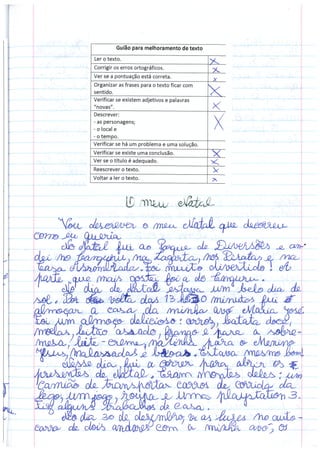 Guião para melhoramento de texto
Ler o texto. X
Corrigir os erros ortográficos. X
Ver se a pontuação está correta. X
Organizar as frases para o texto ficar com sentido. X
Verificar se existem adjetivos e palavras "novas". X
Descrever:
- as personagens;
- o local e
- o tempo. X
Verificar se há um problema e uma solução.
Verificar se existe uma conclusão. X
Ver se o título é adequado. X
Reescrever o texto. X
Voltar a ler o texto. X
O meu Natal
Vou descrever o meu Natal que decorreu
como eu queria.
No Natal fui ao Parque de Diversões e an-
dei no Canguru, na Lagarta, nos Piratas e na
Casa Assombrada. Foi muito divertido! A
parte que mais gostei foi a do Canguru.
No dia de Natal estava um belo dia de
sol. Por volta das 13 h 30 minutos fui
almoçar a casa da minha avó Maria José.
Foi um almoço delicioso: arroz, batata doce,
leitão assado, frango e para a sobre-
mesa, leite-creme, para o Menino
Jesus, malassadas e Estava mesmo bom!
Nesse dia, fui a correr para abrir os
presentes de Natal. Eram montes deles: um
camião de transportar carros de corrida da
lego, um jogo, roupa e uma playstation 3.
Fiz alguns trabalhos de casa.
No dia 30 de dezembro vi as luzes no auto-
carro de dois andares com a minha avó, os